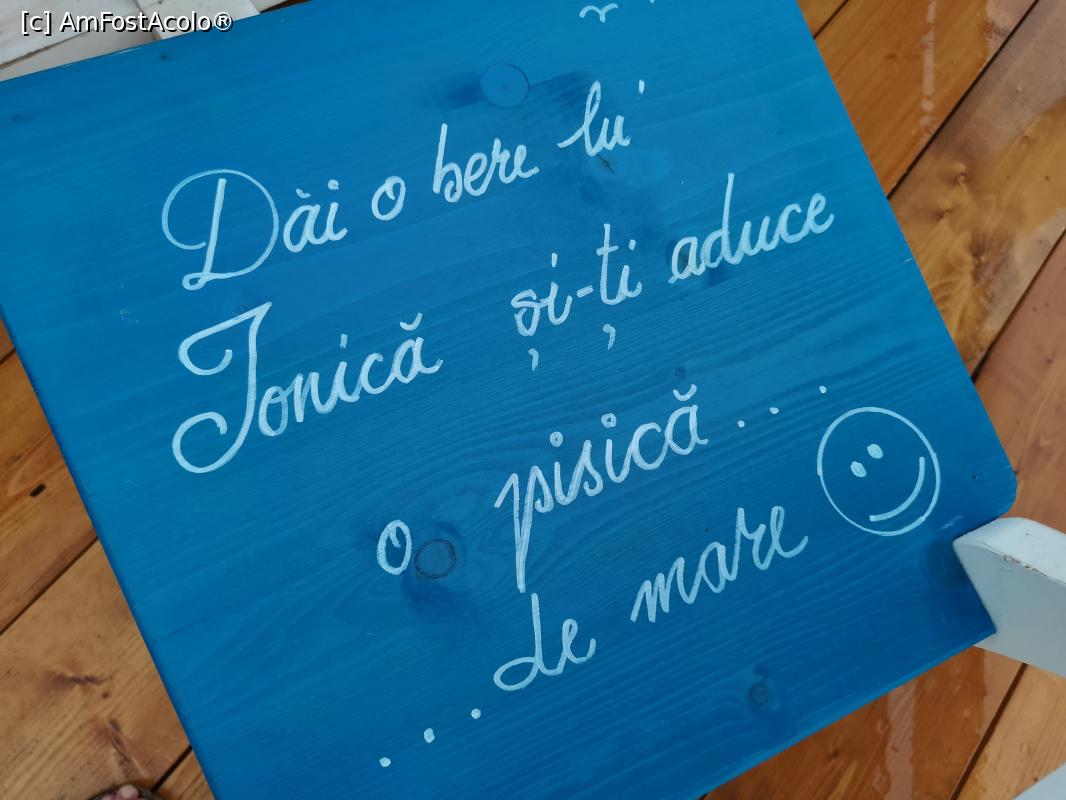 [c] AmFostAcolo®
Dăi o bere lu'
Ionică și-ți aduce
o pisică...
... de mare